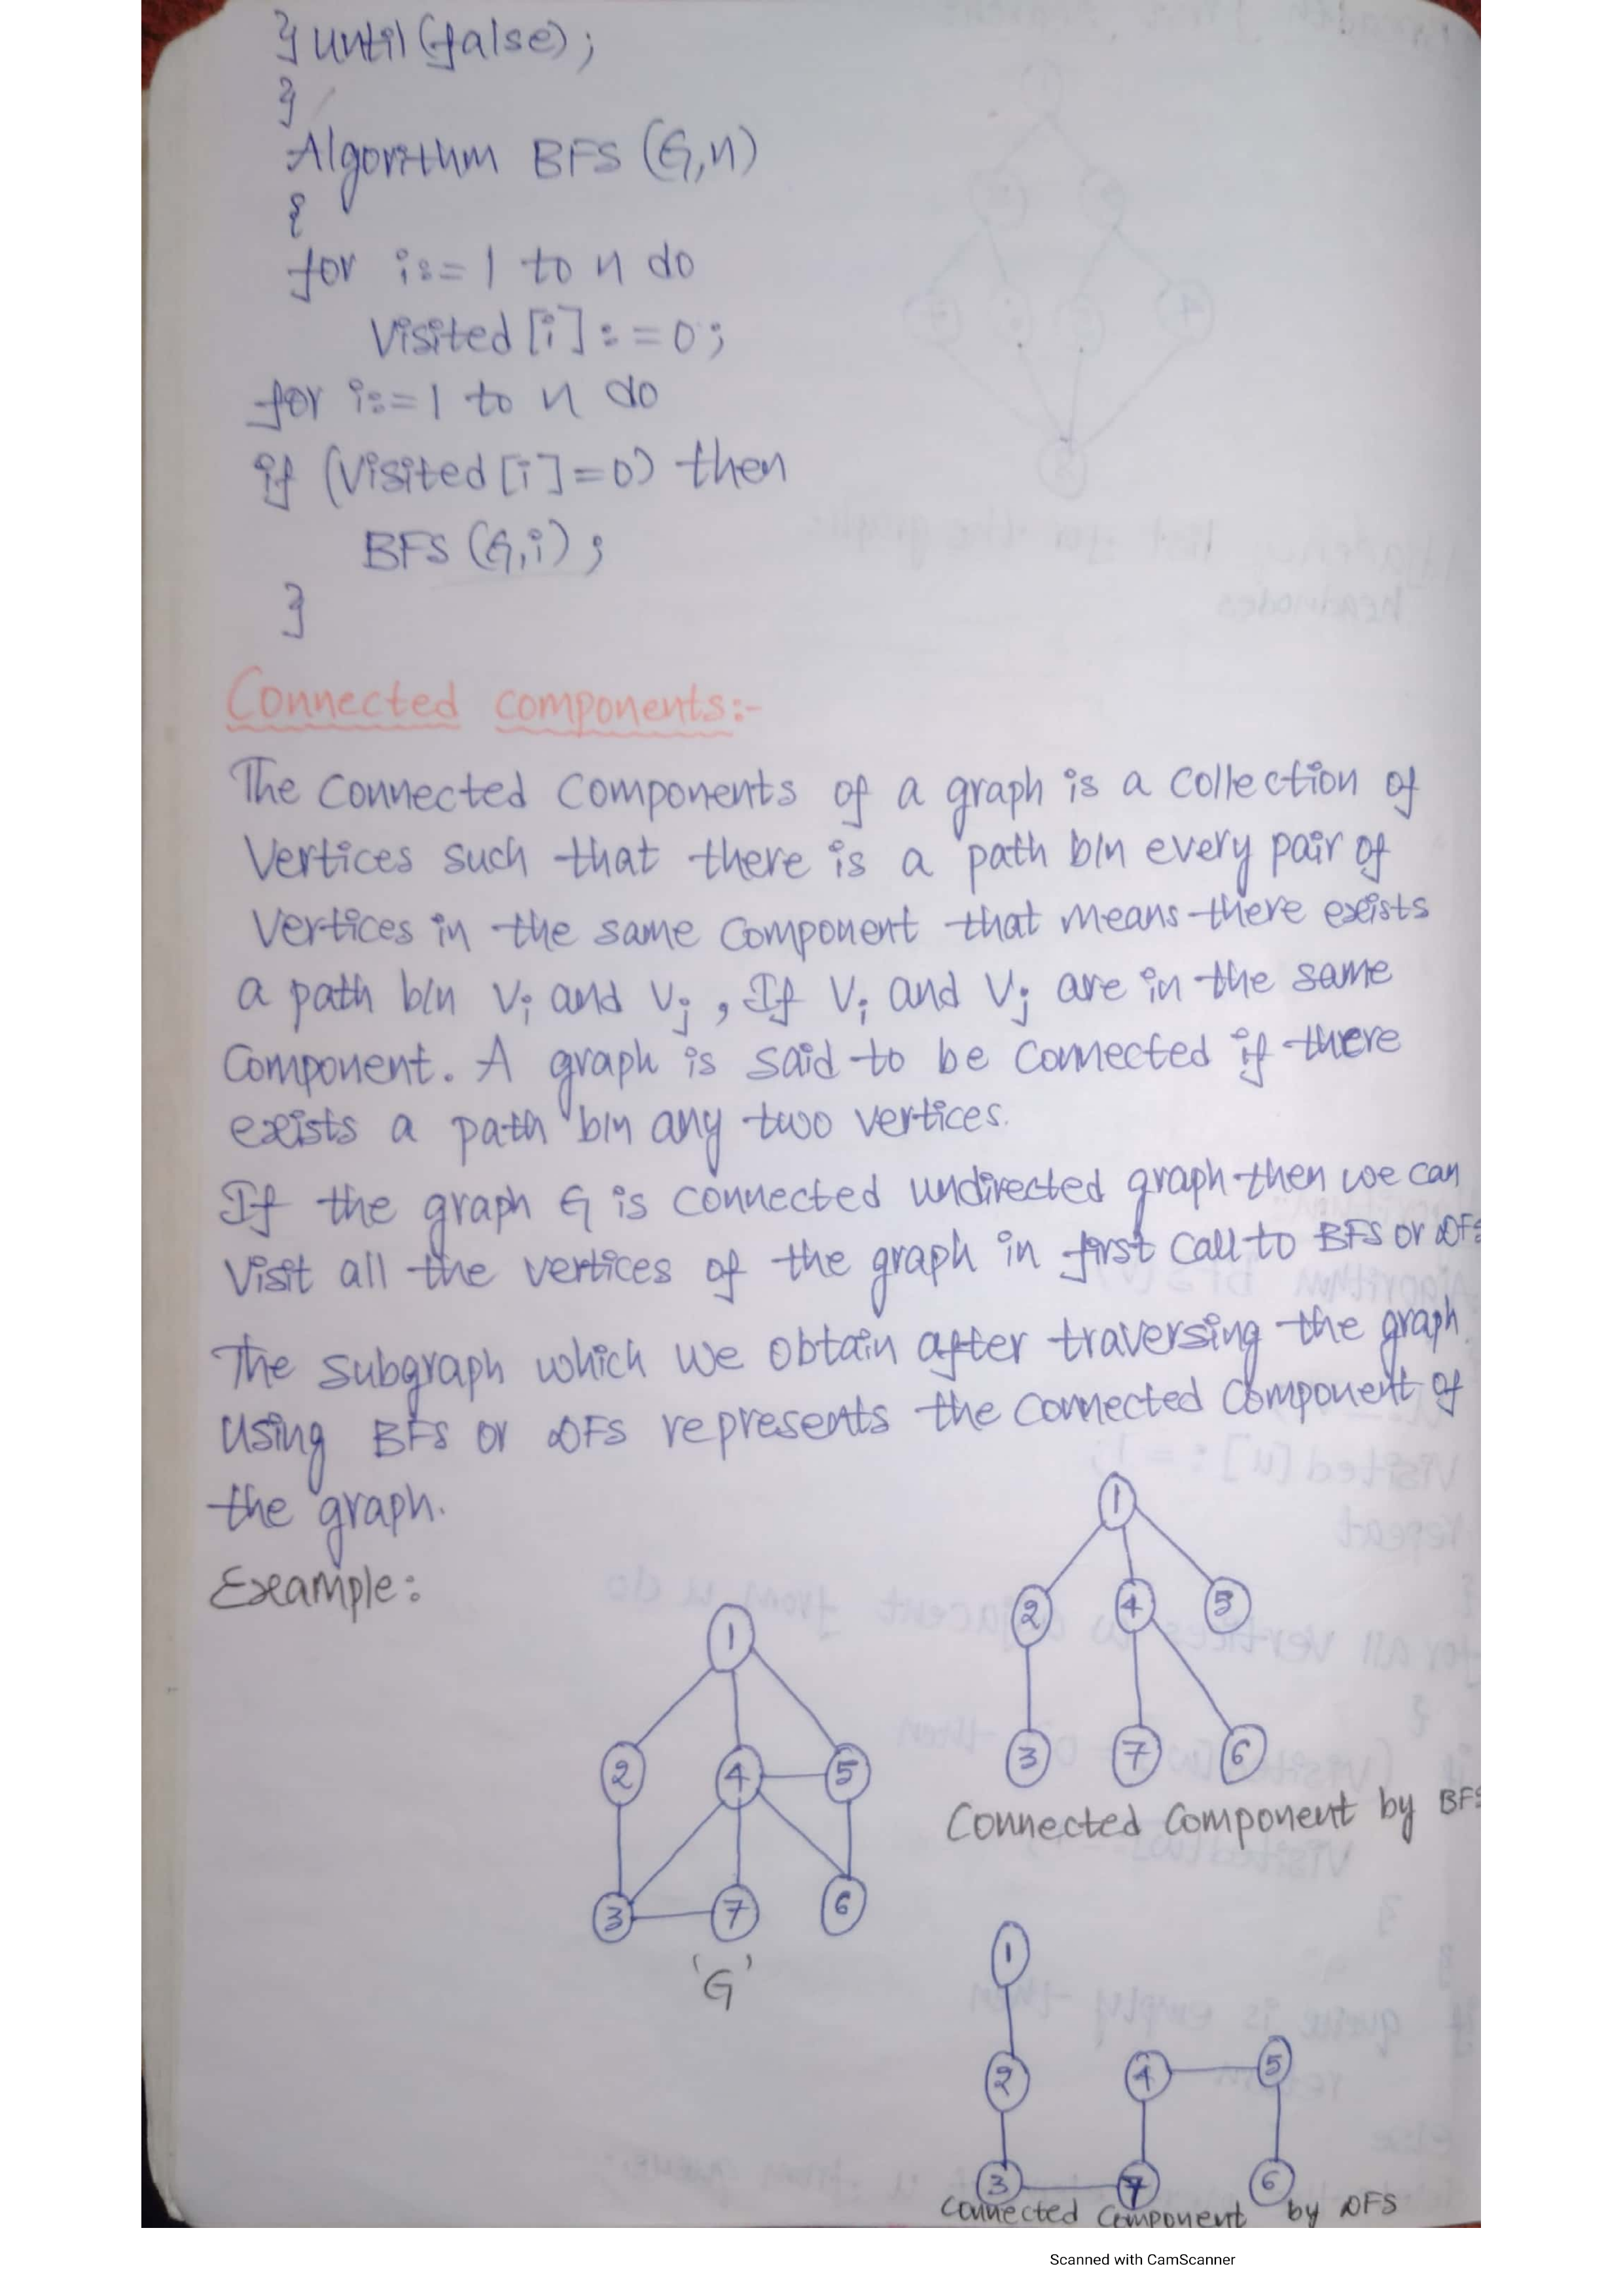 } until (false);
}
Algorithm BFS (G,n)
{
for i:=1 to n do
Visited [i]:=0;
for i:=1 to n do
if (Visited [i]=0) then
BFS (G,i);
}
Connected components:-
The Connected Components of a graph is a Collection of
Vertices such that there is a path b/n every pair of
Vertices in the same Component that means there exists
a path b/n Vi and Vj, If Vi and Vj are in the same
Component. A graph is said to be Connected if there
exists a path b/n any two vertices.
If the graph G is connected undirected graph then we can
Visit all the vertices of the graph in first Call to BFS or DFS
The Subgraph which we obtain after traversing the graph
Using BFS or DFS represents the Connected Component of
the graph.
Example:
1
2 4 5
3 7 6
'G'
1
2 4 5
3 7 6
Connected Component by BFS
1
2 4 5
3 7 6
Connected Component by DFS
Scanned with CamScanner